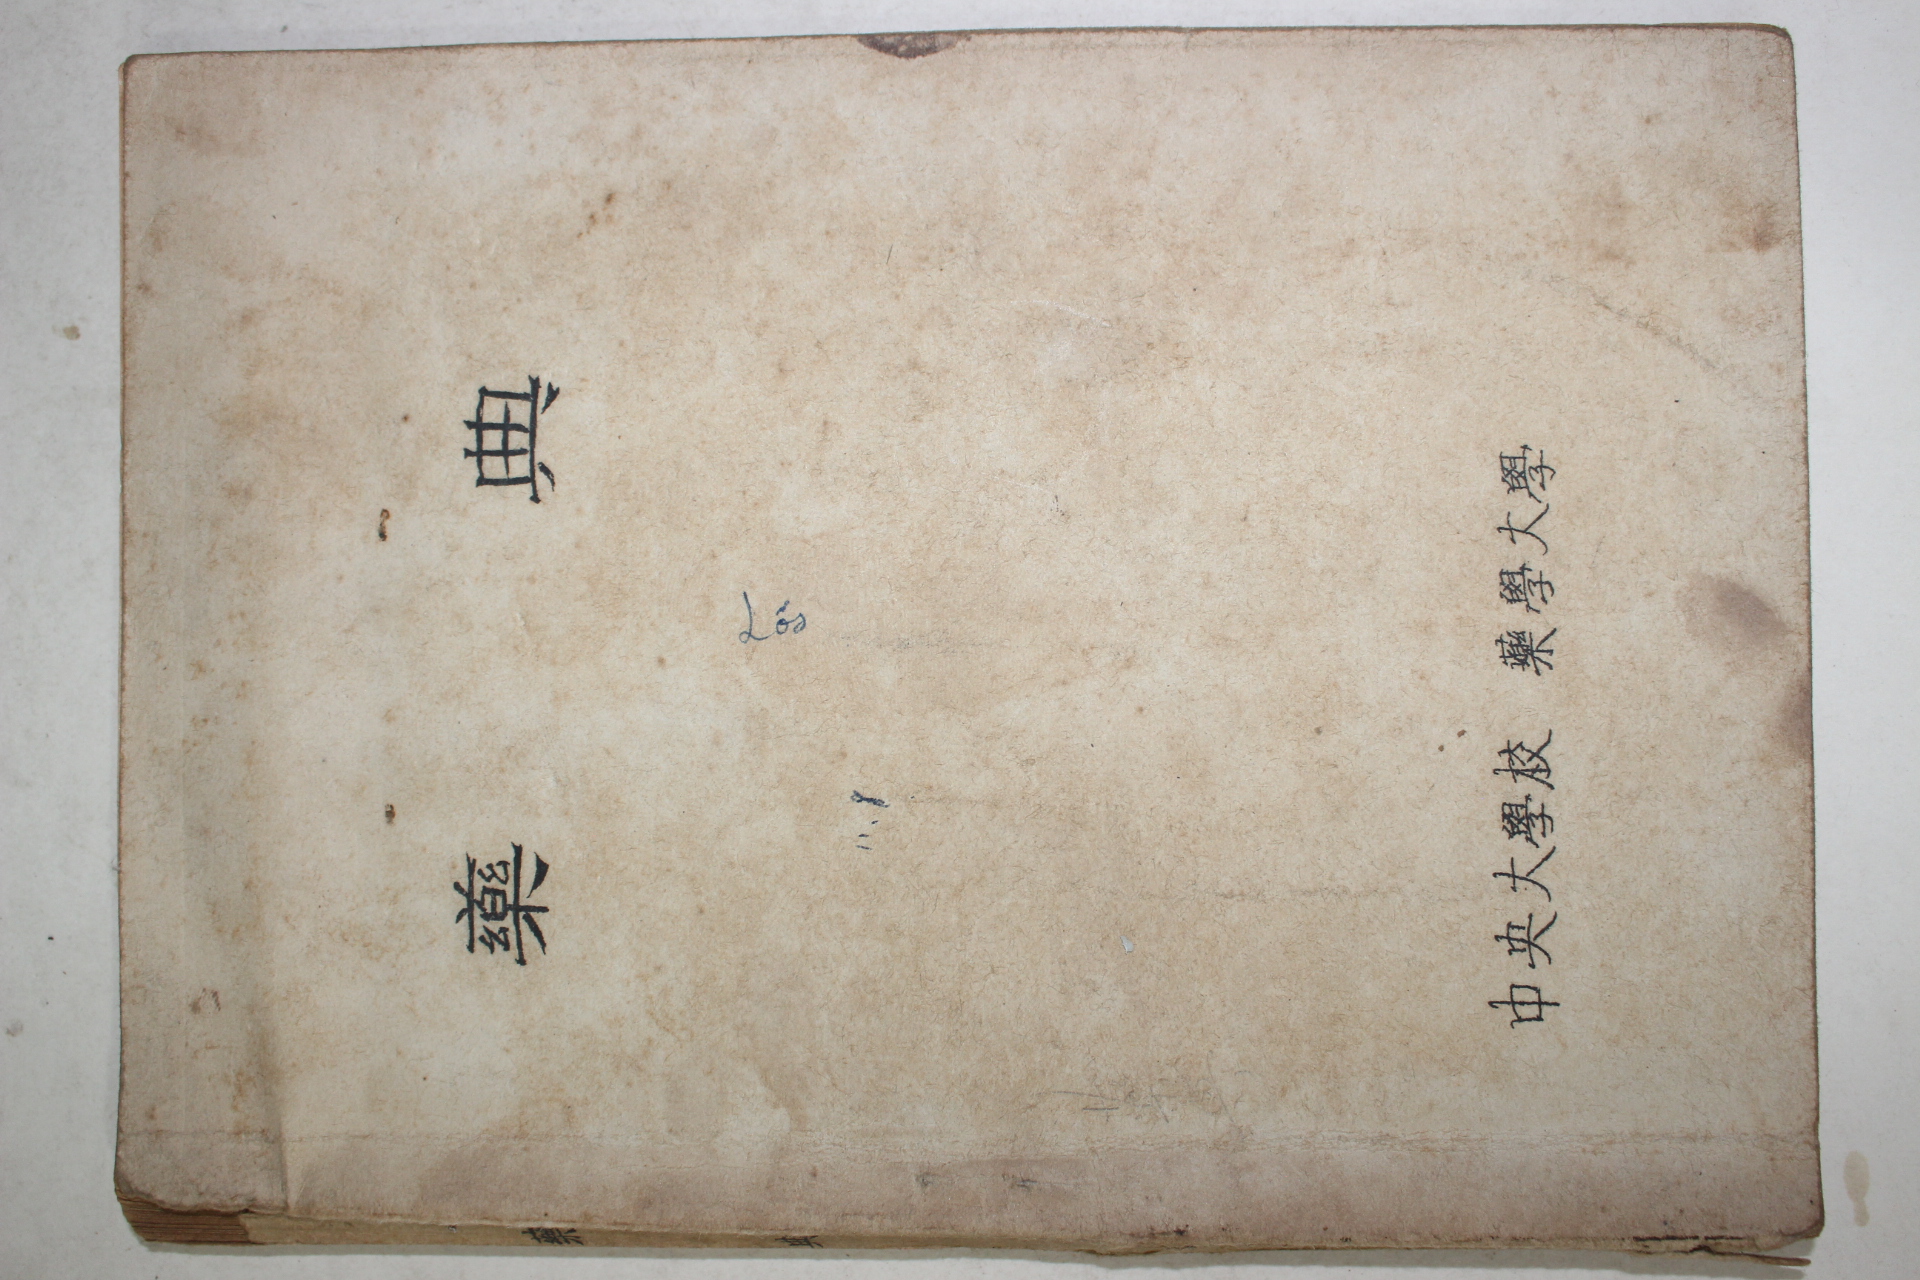 藥 典
中央大學校 藥學大學
藥 典